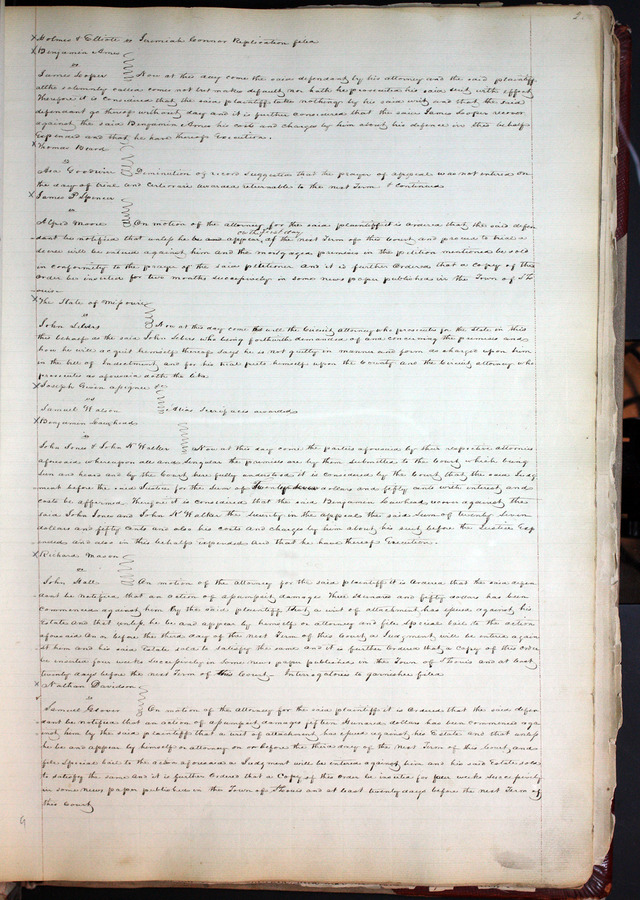 2.
x Holmes & Elliott vs Jeremiah Connor Replication filed
x Benjamin Ames
vs
James Looper Now at this day come the said defendant by his attorney and the said plaintiff
altho solemnly called comes not but makes default nor hath he prosecuted his said suit with effect
Therefore it is considered that the said plaintiff take nothing by his said writ and that the said
defendant go thereof without day and it is further considered that the said James Looper recover
against the said Benjamin Ames his costs and charges by him about his defence in this behalf
expended and that he have thereof Execution.
x Thomas Beard
vs
Asa Goodwin Diminution of record suggested that the prayer of appeal was not entered on
the day of trial and Certiorari awarded returnable to the next Term & continued
x James P Spencer
vs
Alfred Moore On motion of the attorney for the said plaintiff it is ordered that the said defen
on the first day
dant be notified that unless he be and appear, of the next Term of this Court and proceed to trial a
decree will be entered against him and the mortgaged premises in the petition mentioned be sold
in conformity to the prayer of the said petitioner And it is further Ordered that a copy of this
order be inserted for two months successively in some news paper published in the Town of St Lo
uis.
x The State of Missouri
vs
John Seders Now at this day come the will the Circuit Attorney who prosecutes for the State in this
this behalf as the said John Seders who being forthwith demanded of and concerning the premises and
how he will acquit himself thereof says he is not guilty in manner and form as charged upon him
in the bill of Indictment and for his trial puts himself upon the County and the Circuit attorney who
prosecutes as aforesaid doth the like
x Joseph Givin assignee
vs
Samuel Watson Alias Scire facias awarded
x Benjamin Lawhead
vs
John Jones & John K Walker Now at this day come the parties aforesaid by their respective attornies
aforesaid whereupon all and singular the premises are by them submitted to the Court which being
seen and heard and by the Court here fully understood it is considered by the Court that the said Judg
ment before the said Justice for the sum of Twenty seven dollars and fifty cents with interest and
costs be affirmed. Therefore it is considered that the said Benjamin Lawhead recover against the
said John Jones and John K Walker the security in the appeal the said sum of twenty seven
dollars and fifty cents and also his costs and charges by him about his suit before the Justice Exp
ended and also in this behalf expended and that he have thereof Execution.
x Richard Mason
vs
John Hall On motion of the attorney for the said plaintiff it is Ordered that the said defen
dant be notified that an action of assumpsit damages Three Hundred and fifty dollars has been
commenced against him by the said plaintiff that a writ of attachment has issued against his
Estate and that unless he be and appear by himself or attorney and files Special bail to the action
aforesaid on or before the third day of the next Term of this Court a Judgment will be entered again
st him and his said Estate sold to satisfy the same and it is further Ordered that a Copy of this order
be inserted four weeks Successively in Some news paper published in the Town of St Louis and at least
twenty days before the next Term of this Court Interrogatories to garnishee filed
x Nathan Davidson
vs
Samuel Glover On motion of the attorney for the said plaintiff it is Ordered that the said defen
dant be notified that an action of assumpsit damages fifteen Hundred dollars has been commenced aga
inst him by the said plaintiff that a writ of attachment has issued against his Estate and that unless
he be and appear by himself or attorney on or before the third day of the next Term of this Court and
file Special bail to the action aforesaid a Judgment will be entered against him and his said Estate sold
to satisfy the same and it is further Ordered that a Copy of this order be inserted for four weeks Successively
in some news paper published in the Town of St Louis and at least twenty days before the next Term of
this Court